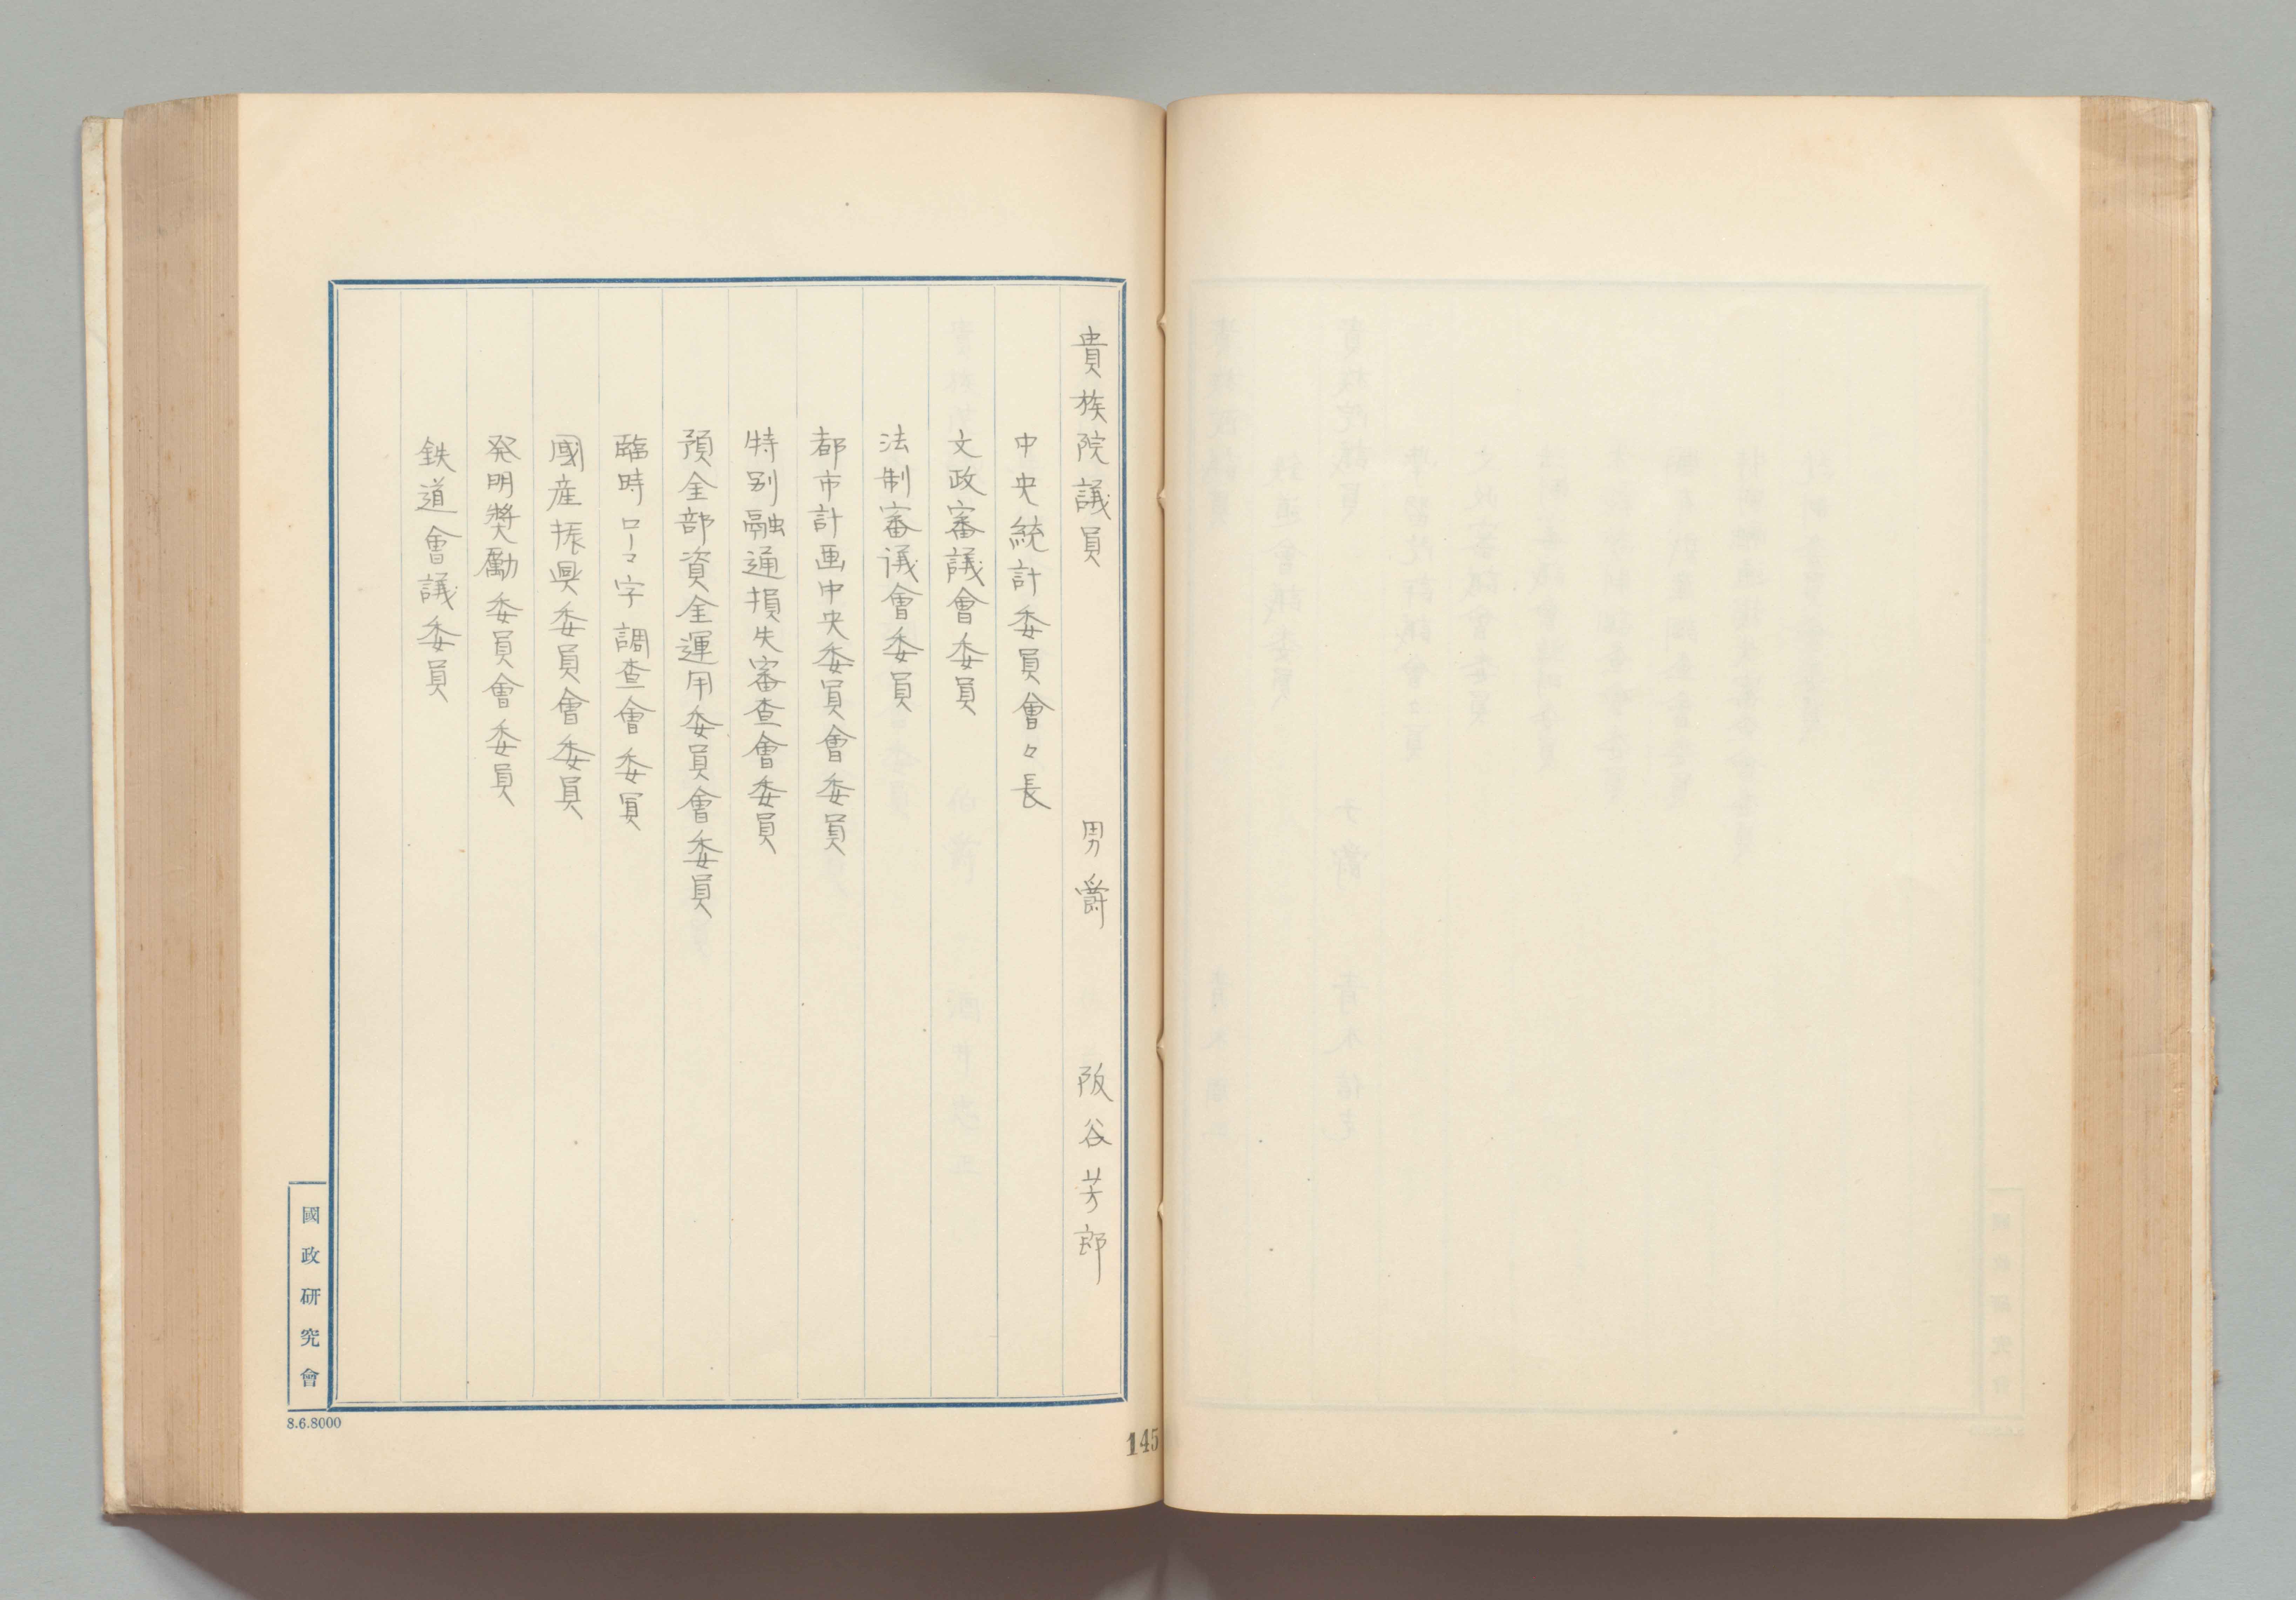 貴族院議員 男爵 阪谷芳郎
中央統計委員會々長
文政審議會委員
法制審議會委員
都市計画中央委員會委員
特別融通損失審査會委員
預金部資金運用委員會委員
臨時ローマ字調査會委員
國産振興委員會委員
発明奬勵委員會委員
鉄道會議委員
國政研究會
8.6.8000
145